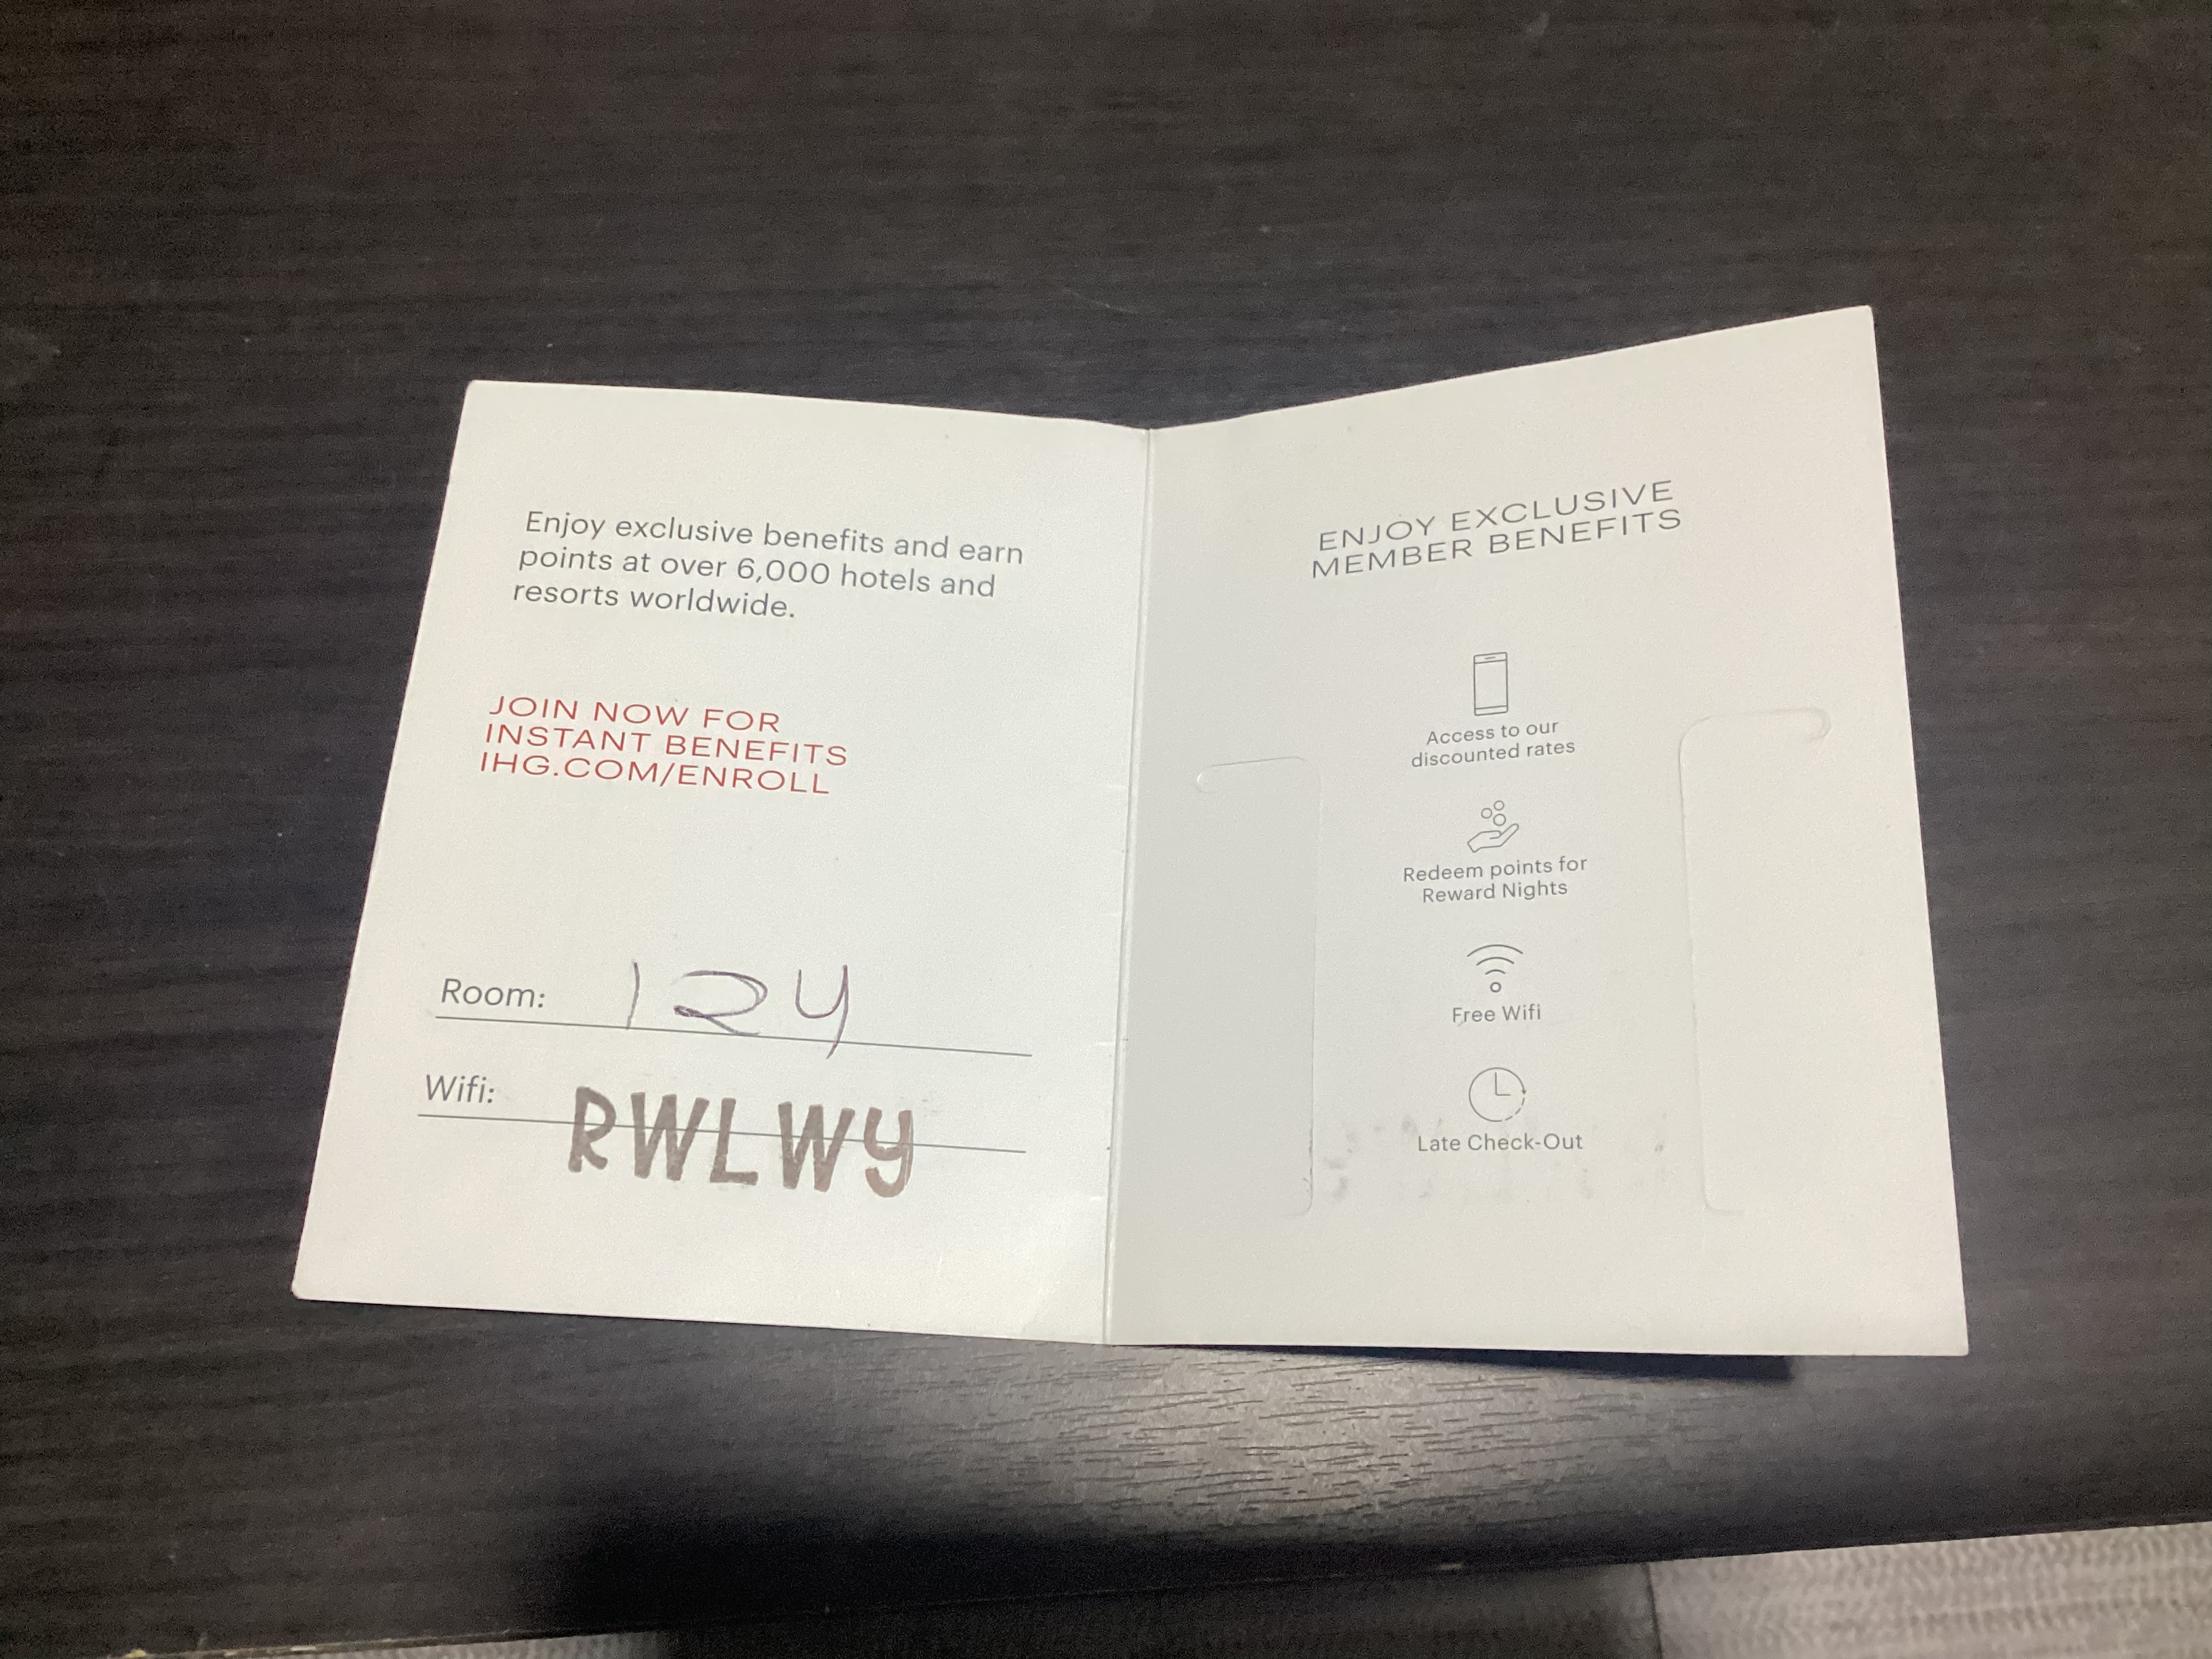 Enjoy exclusive benefits and earn
points at over 6,000 hotels and
resorts worldwide.
JOIN NOW FOR
INSTANT BENEFITS
IHG.COM/ENROLL
Room: 124
Wifi: RWLWY
ENJOY EXCLUSIVE
MEMBER BENEFITS
Access to our
discounted rates
Redeem points for
Reward Nights
Free Wifi
Late Check-Out